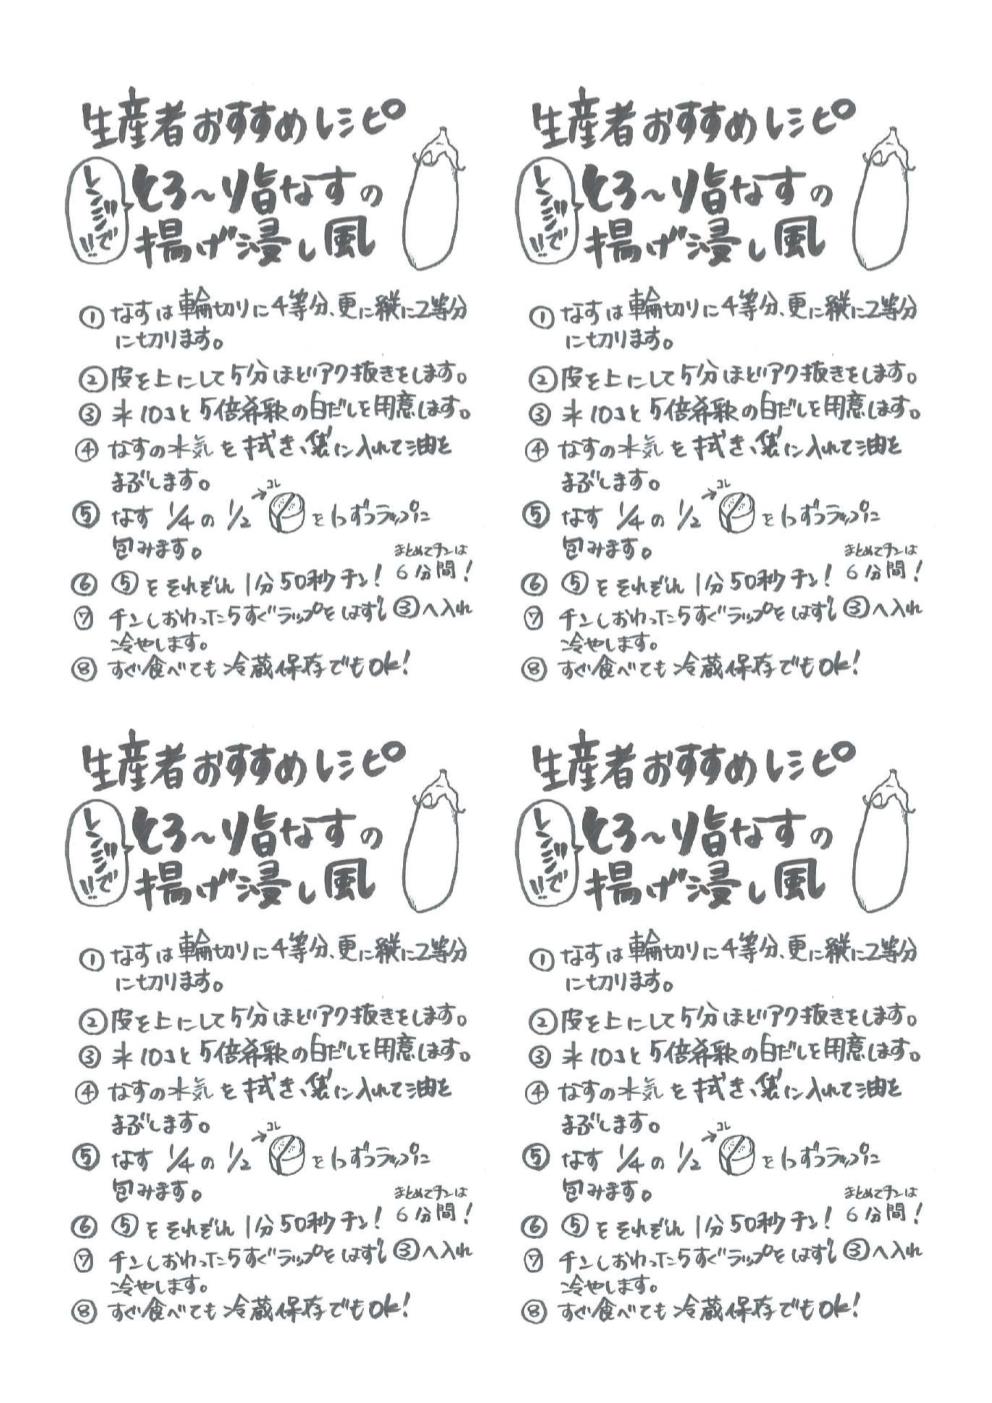 生産者おすすめレシピ
レンジで!!
とろ〜り旨なすの
揚げ浸し風
①なすは輪切りに4等分、更に縦に2等分
に切ります。
②皮を上にして5分ほどアク抜きをします。
③氷10コと5倍希釈の白だしを用意します。
④なすの水気を拭き、袋に入れて油を
まぶします。
→コレ
⑤なす1/4の1/2を1つずつラップに
包みます。
まとめてチンは
6分間!
⑥⑤をそれぞれ1分50秒チン!
⑦チンしおわったらすぐラップをはずし③へ入れ
冷やします。
⑧すぐ食べても冷蔵保存でもOK!
生産者おすすめレシピ
レンジで!!
とろ〜り旨なすの
揚げ浸し風
①なすは輪切りに4等分、更に縦に2等分
に切ります。
②皮を上にして5分ほどアク抜きをします。
③氷10コと5倍希釈の白だしを用意します。
④なすの水気を拭き、袋に入れて油を
まぶします。
→コレ
⑤なす1/4の1/2を1つずつラップに
包みます。
まとめてチンは
6分間!
⑥⑤をそれぞれ1分50秒チン!
⑦チンしおわったらすぐラップをはずし③へ入れ
冷やします。
⑧すぐ食べても冷蔵保存でもOK!
生産者おすすめレシピ
レンジで!!
とろ〜り旨なすの
揚げ浸し風
①なすは輪切りに4等分、更に縦に2等分
に切ります。
②皮を上にして5分ほどアク抜きをします。
③氷10コと5倍希釈の白だしを用意します。
④なすの水気を拭き、袋に入れて油を
まぶします。
→コレ
⑤なす1/4の1/2を1つずつラップに
包みます。
まとめてチンは
6分間!
⑥⑤をそれぞれ1分50秒チン!
⑦チンしおわったらすぐラップをはずし③へ入れ
冷やします。
⑧すぐ食べても冷蔵保存でもOK!
生産者おすすめレシピ
レンジで!!
とろ〜り旨なすの
揚げ浸し風
①なすは輪切りに4等分、更に縦に2等分
に切ります。
②皮を上にして5分ほどアク抜きをします。
③氷10コと5倍希釈の白だしを用意します。
④なすの水気を拭き、袋に入れて油を
まぶします。
→コレ
⑤なす1/4の1/2を1つずつラップに
包みます。
まとめてチンは
6分間!
⑥⑤をそれぞれ1分50秒チン!
⑦チンしおわったらすぐラップをはずし③へ入れ
冷やします。
⑧すぐ食べても冷蔵保存でもOK!